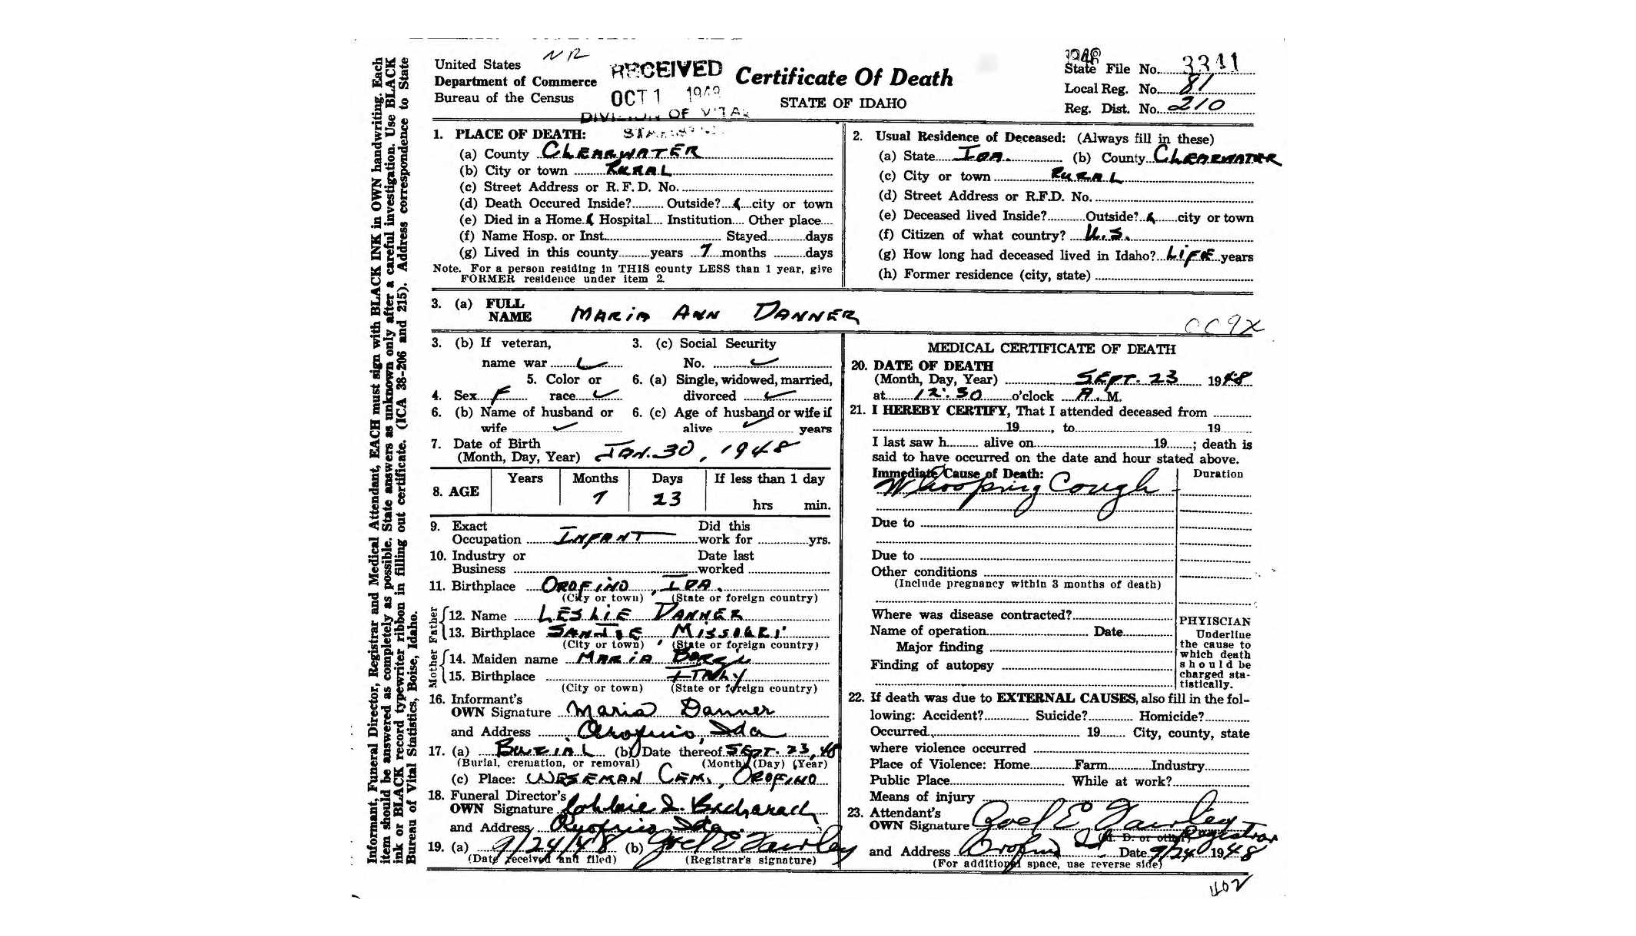 Informant, Funeral Director, Registrar and Medical Attendant, EACH must sign with BLACK INK in OWN handwriting. Each
item should be answered as completely as possible. State answers as unknown only after a careful investigation. Use BLACK
ink or BLACK record typewriter ribbon in filling out certificate. (ICA 38-206 and 215). Address correspondence to State
Bureau of Vital Statistics, Boise, Idaho.
NR
United States
Department of Commerce
Bureau of the Census
RECEIVED
OCT 1 1948
DIVISION OF VITAL
Certificate Of Death
STATE OF IDAHO
1948
State File No. 3341
Local Reg. No. 81
Reg. Dist. No. 210
1. PLACE OF DEATH:
(a) County CLEARWATER
(b) City or town RURAL
(c) Street Address or R. F. D. No.
(d) Death Occured Inside? Outside? city or town
(e) Died in a Home Hospital Institution Other place
(f) Name Hosp. or Inst. Stayed days
(g) Lived in this county years 7 months days
Note. For a person residing in THIS county LESS than 1 year, give
FORMER residence under item 2.
2. Usual Residence of Deceased: (Always fill in these)
(a) State IDA. (b) County CLEARWATER
(c) City or town RURAL
(d) Street Address or R.F.D. No.
(e) Deceased lived Inside? Outside? city or town
(f) Citizen of what country? U.S.
(g) How long had deceased lived in Idaho? LIFE years
(h) Former residence (city, state)
3. (a) FULL
NAME MARIA ANN DANNER
CC9X
3. (b) If veteran,
name war
3. (c) Social Security
No.
4. Sex F
5. Color or
race
6. (a) Single, widowed, married,
divorced
6. (b) Name of husband or
wife
6. (c) Age of husband or wife if
alive years
7. Date of Birth
(Month, Day, Year) JAN. 30, 1948
8. AGE
Years Months Days If less than 1 day
7 23 hrs min.
9. Exact
Occupation INFANT
Did this
work for yrs.
10. Industry or
Business
Date last
worked
11. Birthplace OROFINO, IDA.
(City or town) (State or foreign country)
Father
12. Name LESLIE DANNER
13. Birthplace MISSOURI
(City or town) (State or foreign country)
Mother
14. Maiden name MARIA
15. Birthplace ITALY
(City or town) (State or foreign country)
16. Informant's
OWN Signature Maria Danner
and Address Orofino, Ida
17. (a) BURIAL (b) Date thereof SEPT. 23, 48
(Burial, cremation, or removal) (Month) (Day) (Year)
(c) Place: WESEMAN CEM. OROFINO
18. Funeral Director's
OWN Signature
and Address Orofino Ida
19. (a) 9/24/48 (b) Joel E Fawley
(Date received and filed) (Registrar's signature)
MEDICAL CERTIFICATE OF DEATH
20. DATE OF DEATH
(Month, Day, Year) SEPT. 23 1948
at 12:30 o'clock A. M.
21. I HEREBY CERTIFY, That I attended deceased from
19 , to 19
I last saw h alive on 19 ; death is
said to have occurred on the date and hour stated above.
Immediate Cause of Death: Duration
Whooping Cough
Due to
Due to
Other conditions
(Include pregnancy within 3 months of death)
Where was disease contracted?
Name of operation Date
Major finding
Finding of autopsy
PHYISCIAN
Underline
the cause to
which death
should be
charged sta-
tistically.
22. If death was due to EXTERNAL CAUSES, also fill in the fol-
lowing: Accident? Suicide? Homicide?
Occurred 19 City, county, state
where violence occurred
Place of Violence: Home Farm Industry
Public Place While at work?
Means of injury
23. Attendant's
OWN Signature Joel E Fawley
(M. D. or other) Registrar
and Address Orofino Date 9/24 1948
(For additional space, use reverse side)
402